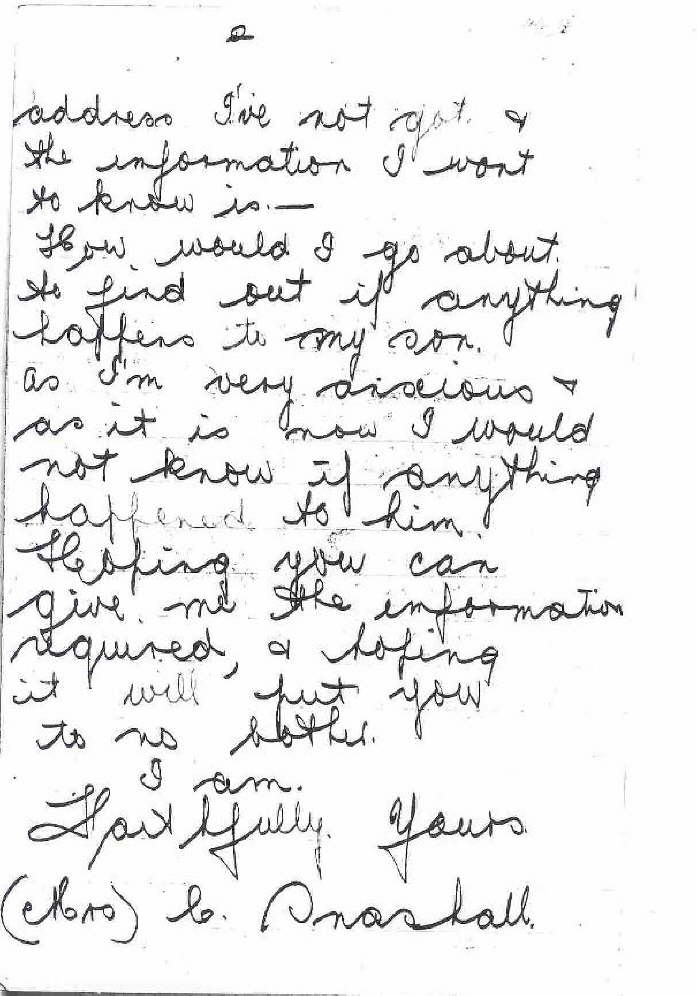 2
address I've not got &
the information I want
to know is.—
How would I go about.
to find out if anything
happens to my son.
as I'm very anxious &
as it is now I would
not know if anything
happened to him.
Hoping you can
give me the information
required, & hoping
it will put you
to no bother.
I am.
Faithfully Yours
(Mrs) C. Snashall.